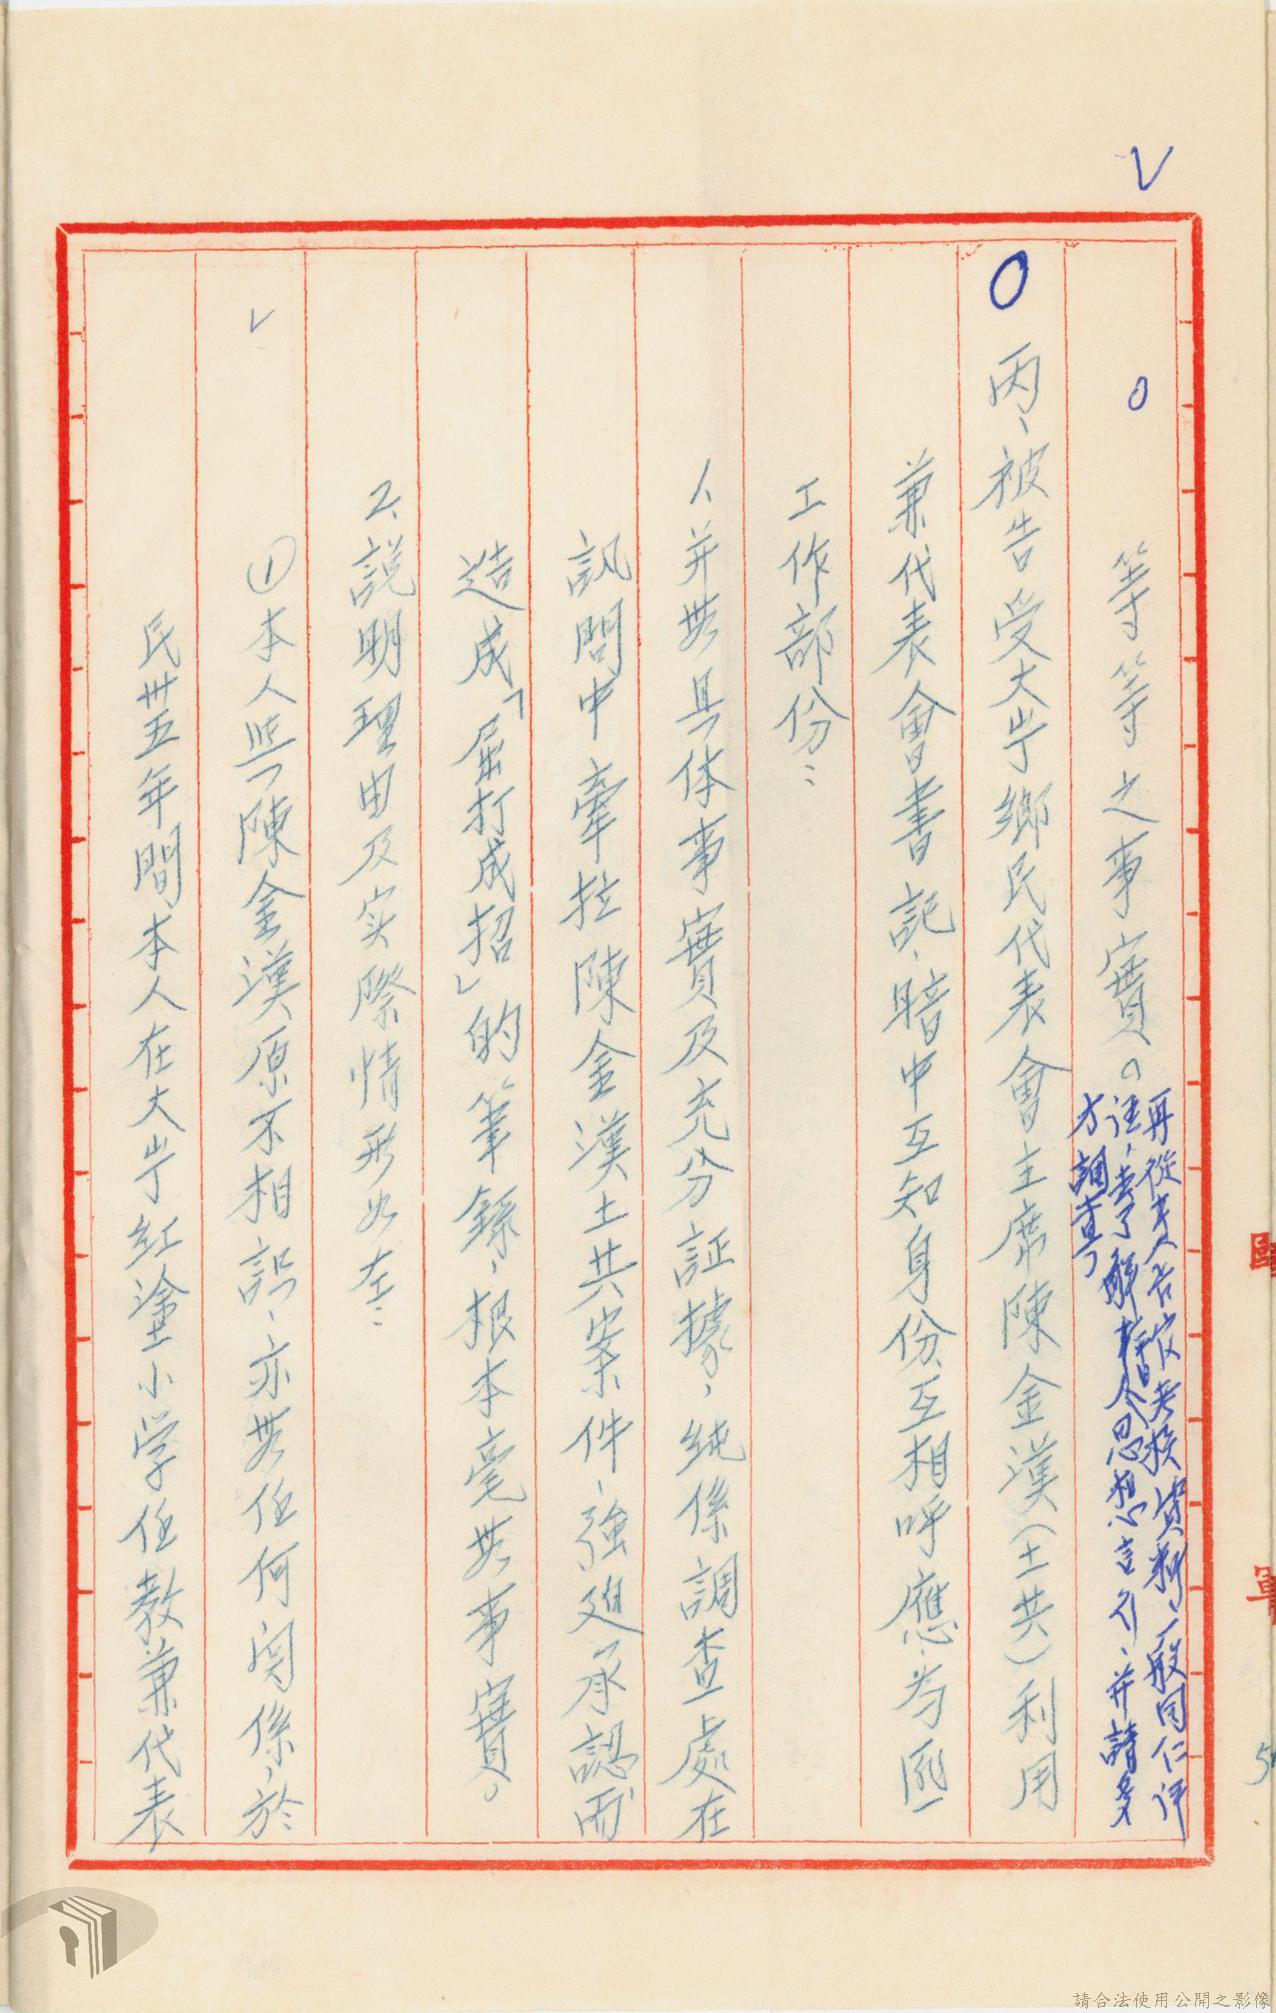 等等之事實。
再從長官校長接資料一般同仁評
語、去了解本人思想言行、并請多
方調查
丙、被告受大庁鄉民代表會主席陳金漢(土共)利用
兼代表會書記、暗中互知身份、互相呼應、為匪
工作部份:
1、并無具体事實及充分証據，純係調查處在
訊問中牽拉陳金漢土共案件、強迫承認而
造成「屈打成招」的筆錄，根本毫無事實。
2、說明理由及实際情形如左:
①本人與陳金漢原不相認、亦無任何関係，於
民卅五年間本人在大庁紅塗小学任教兼代表
請合法使用公開之影像